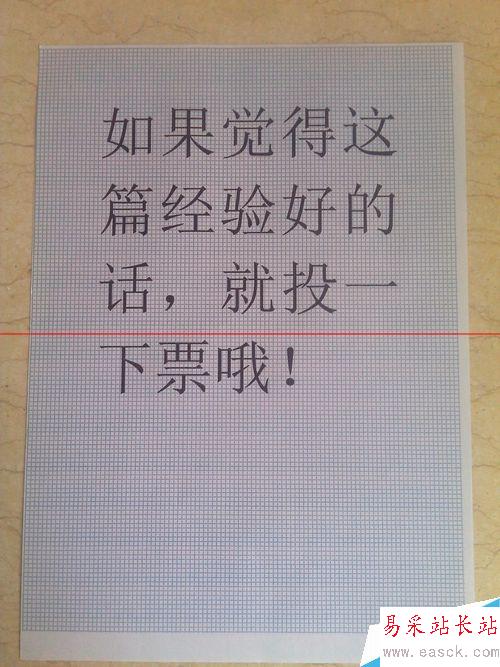 如果觉得这
篇经验好的
话，就投一
下票哦！
易采站长站
www.easck.com